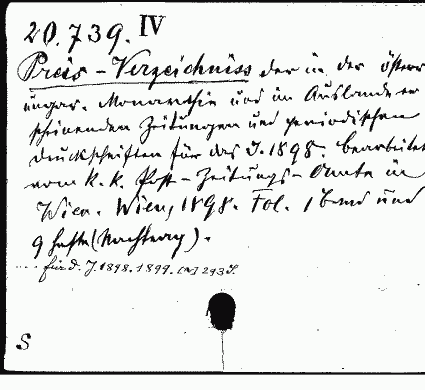 20.739. IV
Preis-Verzeichniss der in der österr
ungar. Monarchie und im Auslande er
scheinenden Zeitungen und periodischen
Druckschriften für das J. 1898. bearbeitet
vom k. k. Post-Zeitungs-Amte in
Wien. Wien, 1898. Fol. 1 Band und
9 Hefte (Nachtrag).
für d. J. 1898. 1899. 293 S.
S